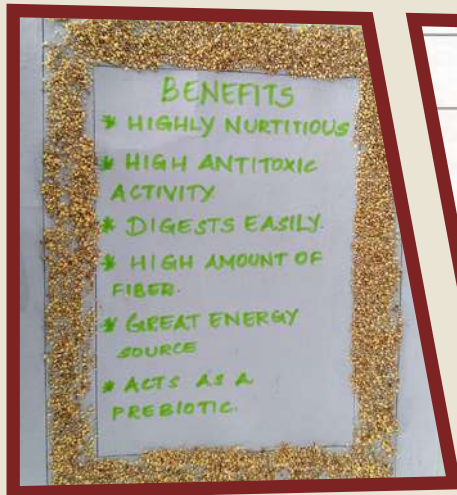 BENEFITS
* HIGHLY NURTITIOUS
* HIGH ANTITOXIC
ACTIVITY
* DIGESTS EASILY.
* HIGH AMOUNT OF
FIBER.
* GREAT ENERGY
SOURCE
* ACTS AS A
PREBIOTIC.